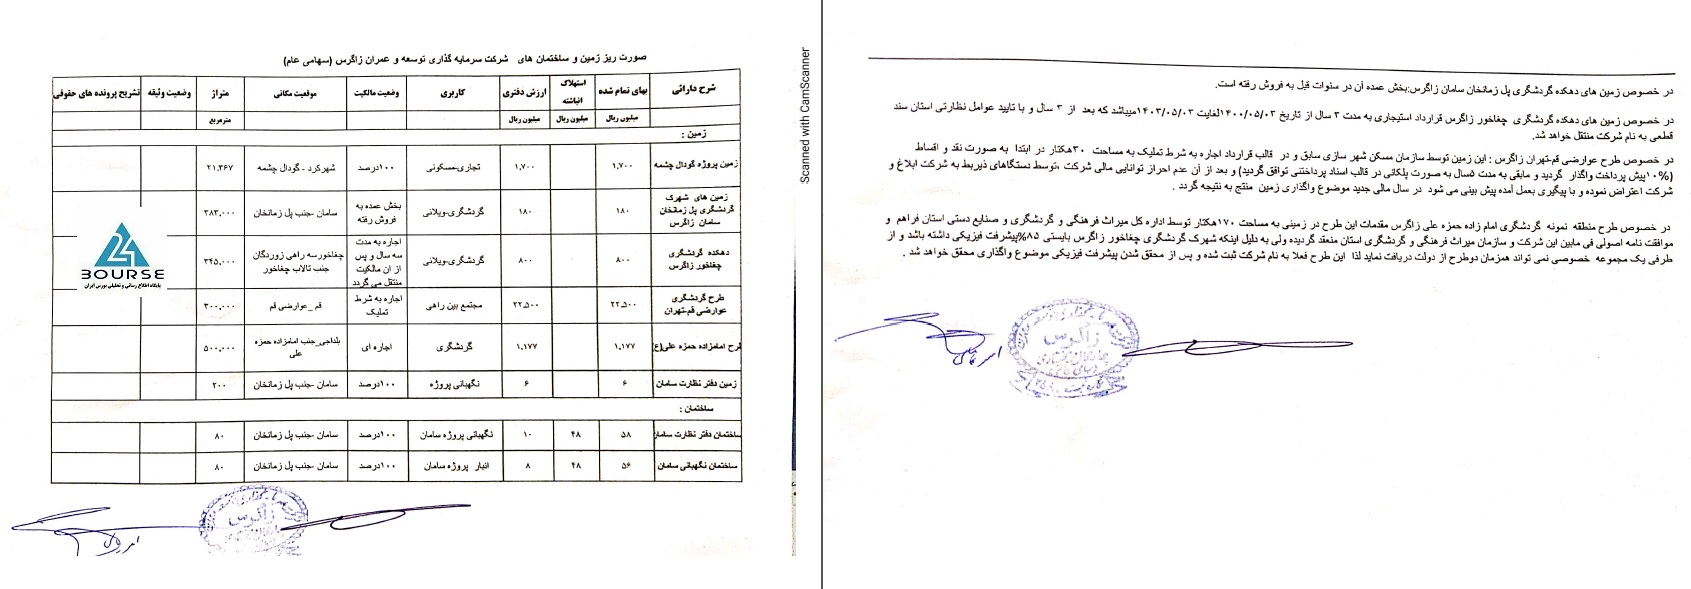 صورت ریز زمین و ساختمان های شرکت سرمایه گذاری توسعه و عمران زاگرس (سهامی عام)
شرح دارائی بهای تمام شده استهلاک انباشته ارزش دفتری کاربری وضعیت مالکیت موقعیت مکانی متراژ وضعیت وثیقه تشریح پرونده های حقوقی
میلیون ریال میلیون ریال میلیون ریال مترمربع
زمین :
زمین پروژه گودال چشمه ۱,۷۰۰ ۱,۷۰۰ تجاری-مسکونی ۱۰۰درصد شهرکرد - گودال چشمه ۲۱,۳۶۷
زمین های شهرک گردشگری پل زمانخان سامان زاگرس ۱۸۰ ۱۸۰ گردشگری-ویلائی بخش عمده به فروش رفته سامان -جنب پل زمانخان ۳۸۳,۰۰۰
دهکده گردشگری چغاخور زاگرس ۸۰۰ ۸۰۰ گردشگری-ویلائی اجاره به مدت سه سال و پس از ان مالکیت منتقل می گردد چغاخورسه راهی زوردگان جنب تالاب چغاخور ۳۴۵,۰۰۰
طرح گردشگری عوارضی قم-تهران ۲۲,۵۰۰ ۲۲,۵۰۰ مجتمع بین راهی اجاره به شرط تملیک قم _عوارضی قم ۳۰۰,۰۰۰
طرح امامزاده حمزه علی(ع) ۱,۱۷۷ ۱,۱۷۷ گردشگری اجاره ای بلداجی_جنب امامزاده حمزه علی ۵۰۰,۰۰۰
زمین دفتر نظارت سامان ۶ ۶ نگهبانی پروژه ۱۰۰درصد سامان -جنب پل زمانخان ۲۰۰
ساختمان :
ساختمان دفتر نظارت سامان ۵۸ ۴۸ ۱۰ نگهبانی پروژه سامان ۱۰۰درصد سامان -جنب پل زمانخان ۸۰
ساختمان نگهبانی سامان ۵۶ ۴۸ ۸ انبار پروژه سامان ۱۰۰درصد سامان -جنب پل زمانخان ۸۰
BOURSE 24
پایگاه اطلاع رسانی و تحلیلی بورس ایران
زاگرس
Scanned with CamScanner
در خصوص زمین های دهکده گردشگری پل زمانخان سامان زاگرس:بخش عمده آن در سنوات قبل به فروش رفته است.
در خصوص زمین های دهکده گردشگری چغاخور زاگرس قرارداد استیجاری به مدت ۳ سال از تاریخ ۱۴۰۰/۰۵/۰۳لغایت ۱۴۰۳/۰۵/۰۳میباشد که بعد از ۳ سال و با تایید عوامل نظارتی استان سند
قطعی به نام شرکت منتقل خواهد شد.
در خصوص طرح عوارضی قم-تهران زاگرس : این زمین توسط سازمان مسکن شهر سازی سابق و در قالب قرارداد اجاره به شرط تملیک به مساحت ۳۰هکتار در ابتدا به صورت نقد و اقساط
(۱۰%پیش پرداخت واگذار گردید و مابقی به مدت ۵سال به صورت پلکانی در قالب اسناد پرداختنی توافق گردید) و بعد از آن عدم احراز توانایی مالی شرکت ،توسط دستگاهای ذیربط به شرکت ابلاغ و
شرکت اعتراض نموده و با پیگیری بعمل آمده پیش بینی می شود در سال مالی جدید موضوع واگذاری زمین منتج به نتیجه گردد .
در خصوص طرح منطقه نمونه گردشگری امام زاده حمزه علی زاگرس مقدمات این طرح در زمینی به مساحت ۱۷۰هکتار توسط اداره کل میراث فرهنگی و گردشگری و صنایع دستی استان فراهم و
موافقت نامه اصولی فی مابین این شرکت و سازمان میراث فرهنگی و گردشگری استان منعقد گردیده ولی به دلیل اینکه شهرک گردشگری چغاخور زاگرس بایستی ۸۵%پیشرفت فیزیکی داشته باشد و از
طرفی یک مجموعه خصوصی نمی تواند همزمان دوطرح از دولت دریافت نماید لذا این طرح فعلا به نام شرکت ثبت شده و پس از محقق شدن پیشرفت فیزیکی موضوع واگذاری محقق خواهد شد .
زاگرس